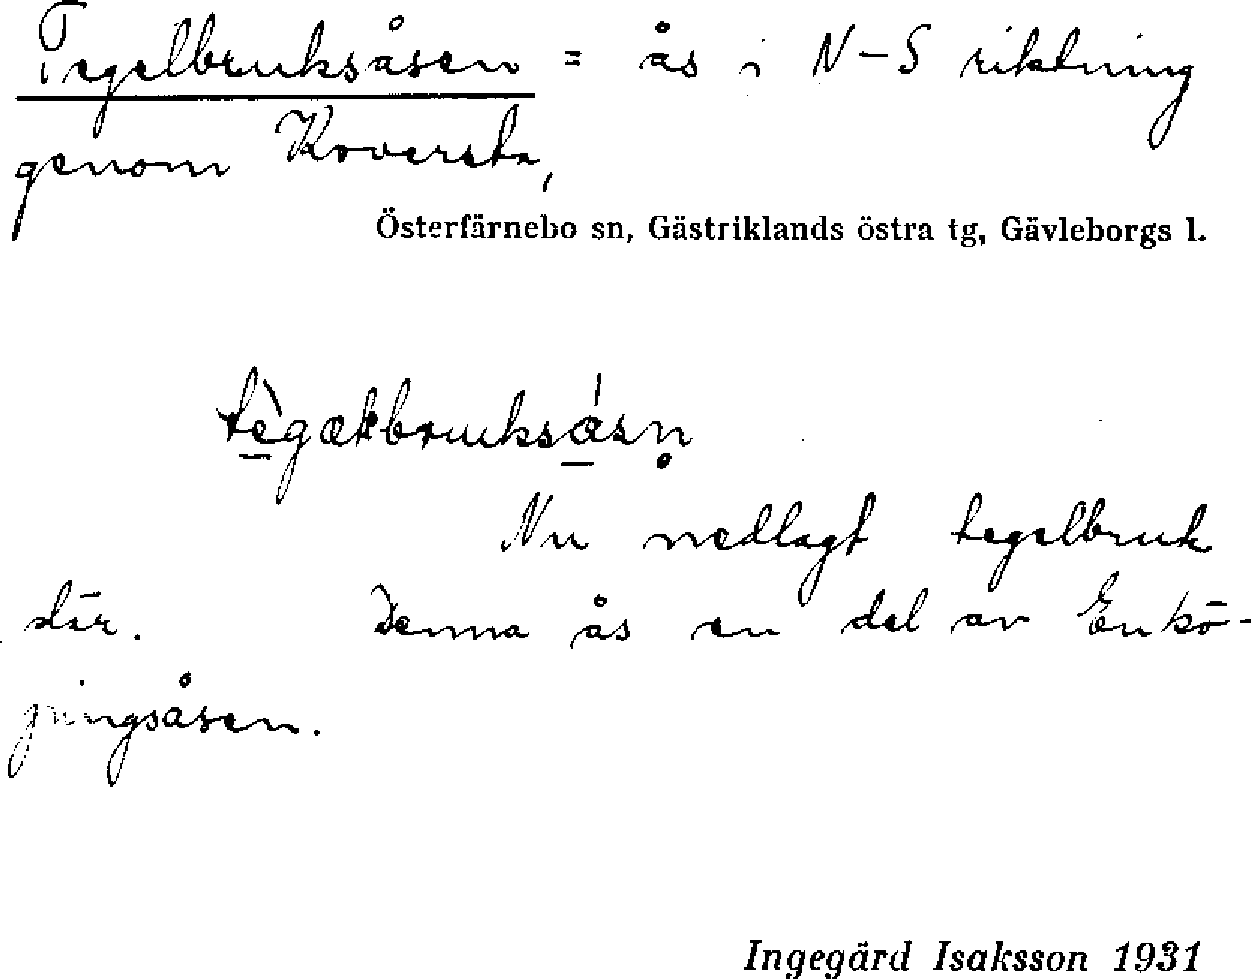 Tegelbruksåsen = ås i N-S riktning
genom Koversta,
Österfärnebo sn, Gästriklands östra tg, Gävleborgs l.
Nu nedlagt tegelbruk
där. Denna ås en del av Enkö-
pingsåsen.
Ingegärd Isaksson 1931